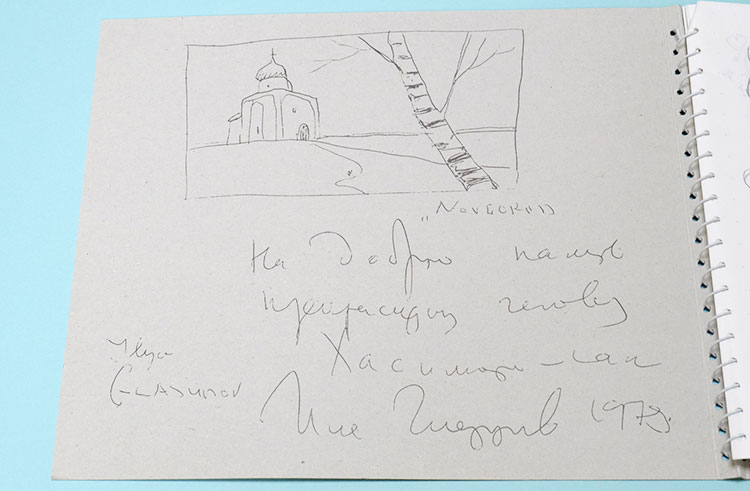 „Novgorod
На добрую память
прекрасному человеку
Хасимото-сан
Ilya
Glasunov
Илья Глазунов 1979.